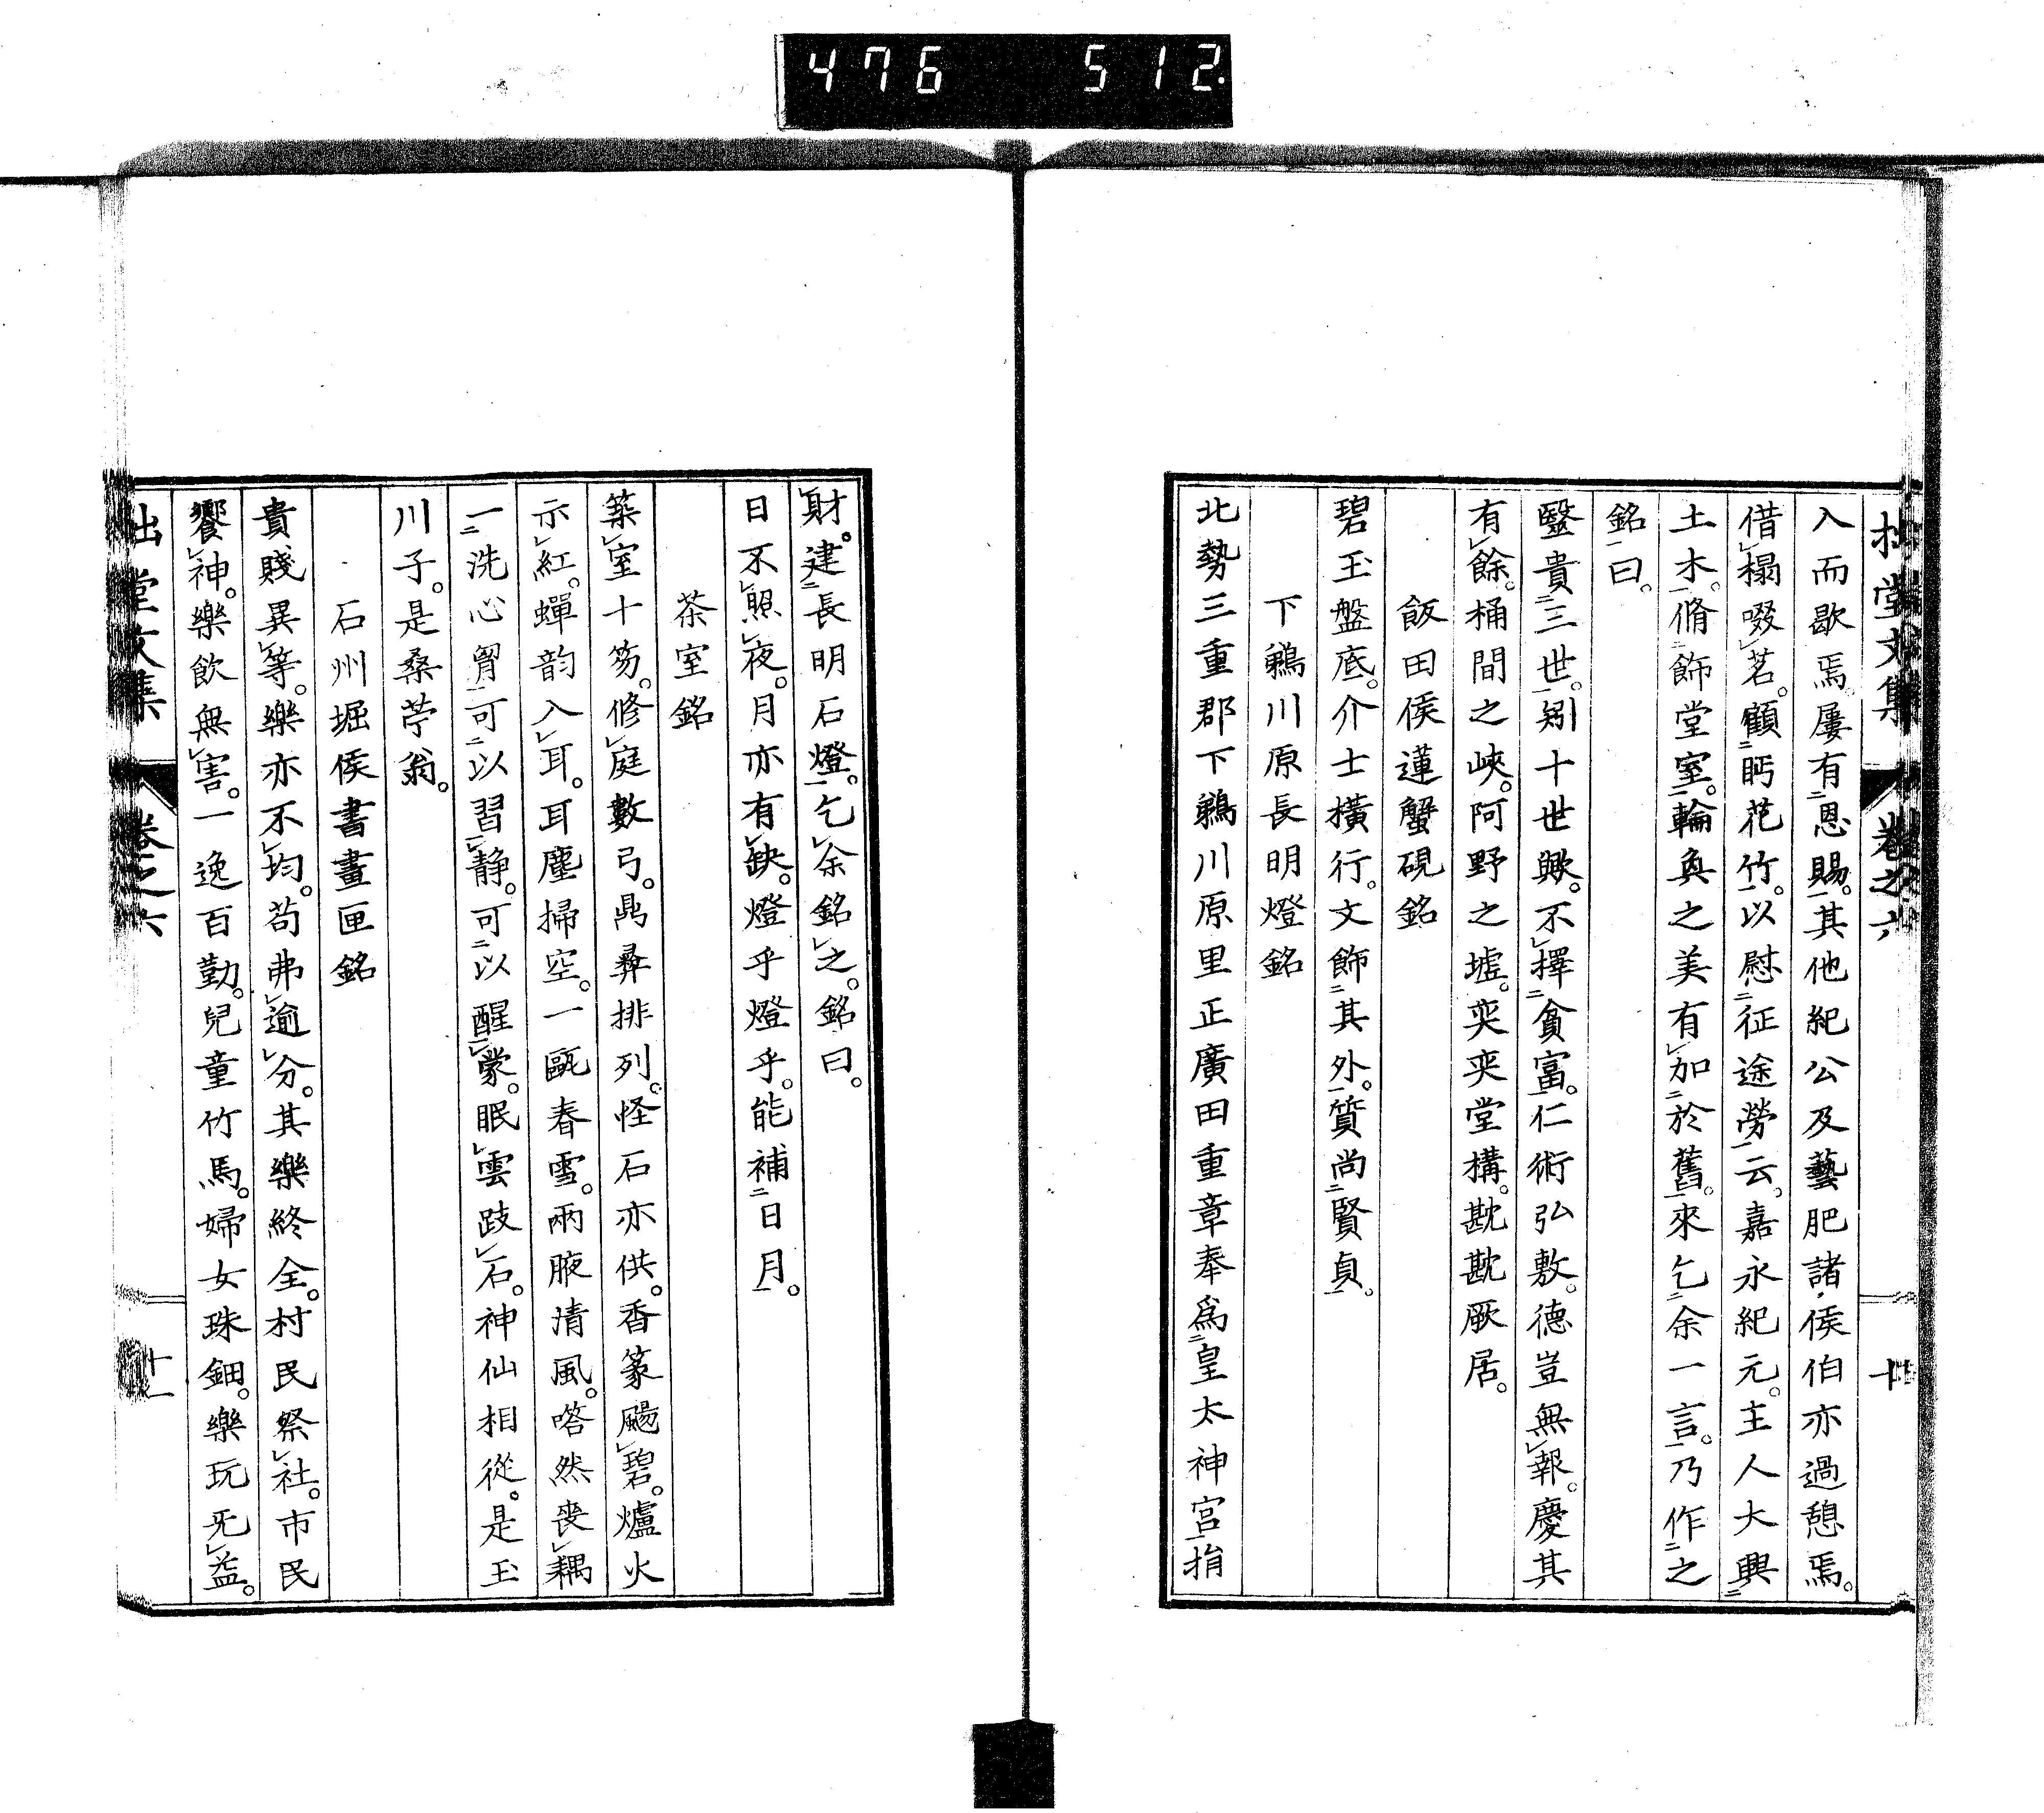 476 512
拙堂文集 卷之六 十
入而歇焉屢有恩賜。其他紀公及藝肥諸侯伯亦過憩焉。
借榻啜茗。顧眄花竹。以慰征途勞云。嘉永紀元。主人大興
土木。脩飾堂室。輪奐之美有加於舊。來乞余一言。乃作之
銘曰。
毉貴三世。矧十世歟。不擇貧富。仁術弘敷。德豈無報。慶其
有餘。桶間之峽。阿野之墟。奕奕堂構。耽耽厥居。
飯田侯蓮蟹硯銘
碧玉盤底。介士橫行。文飾其外。質尚賢貞。
下鵜川原長明燈銘
北勢三重郡下鵜川原里正廣田重章奉爲皇太神宮捐
財。建長明石燈。乞余銘之。銘曰。
日不照夜。月亦有缺。燈乎燈乎。能補日月。
茶室銘
築室十笏。修庭數弓。鼎彝排列。怪石亦供。香篆颺碧。爐火
示紅。蟬韵入耳。耳塵掃空。一甌春雪。兩腋清風。嗒然喪耦
一洗心胷。可以習静。可以醒蒙。眠雲跂石。神仙相從。是玉
川子。是桑苧翁。
石州堀侯書畫匣銘
貴賤異等。樂亦不均。苟弗逾分。其樂終全。村民祭社。市民
饗神。樂飲無害。一逸百勤。兒童竹馬。婦女珠鈿。樂玩旡益。
拙堂文集 卷之六 十一